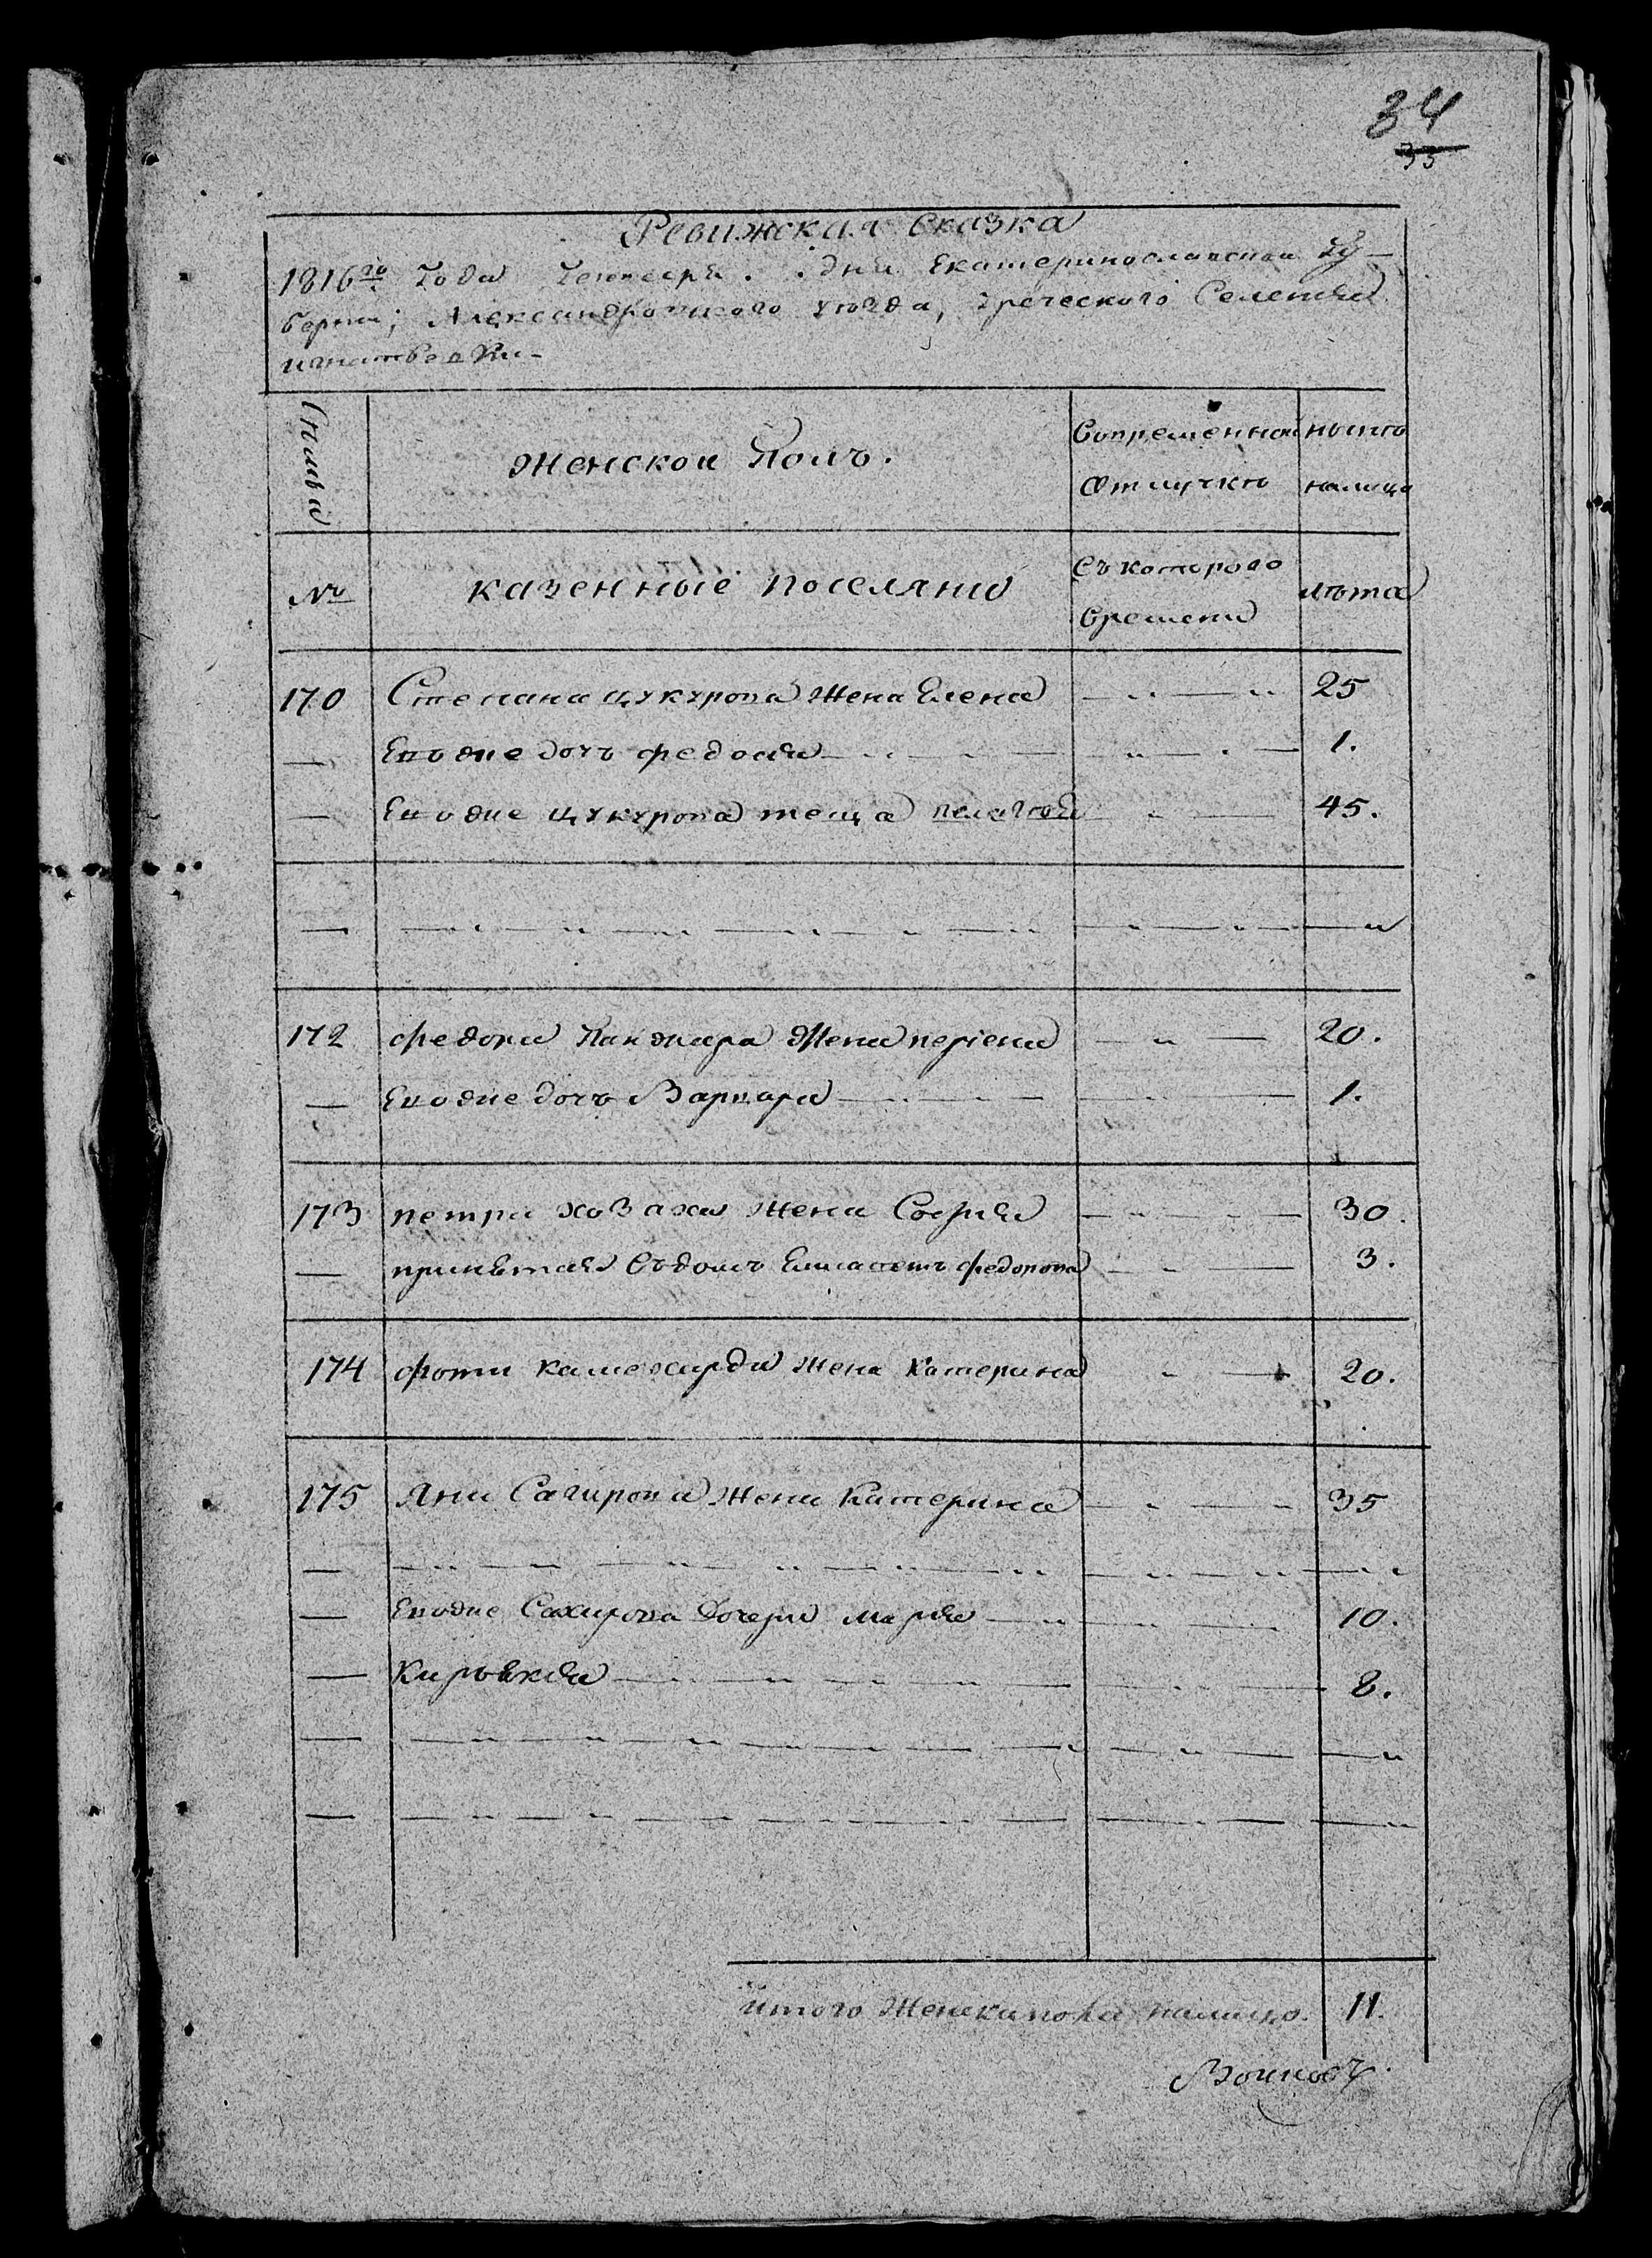 34
35
Ревижская Сказка
1816го Года Генваря . . дня Екатеринославской Гу-
берни; Александровского уюзда, греческого Селения
Семья
Женской Полъ.
Вовременной
Отлучкю
ныню
налицо
№
казенные поселяню
Съ которого
времени
люта
170 Степана цукурова Жена Елена 25
— Евоdже дочъ федосия 1.
— Евоdже цукурова теща пелагия 45.
172 федора Панджара Жена 20.
— Евоdже дочъ Варвара 1.
173 петра хозахи Жена София 30.
— принетая въдомъ Елисаветъ федорова 3.
174 фоти Жена Катерина 20.
175 Яни Сагирова Жена Катерина 35
— Евоdже Сахирова Дочери мария 10.
— Кирьякия 8.
итого Женска пола налицо. 11.